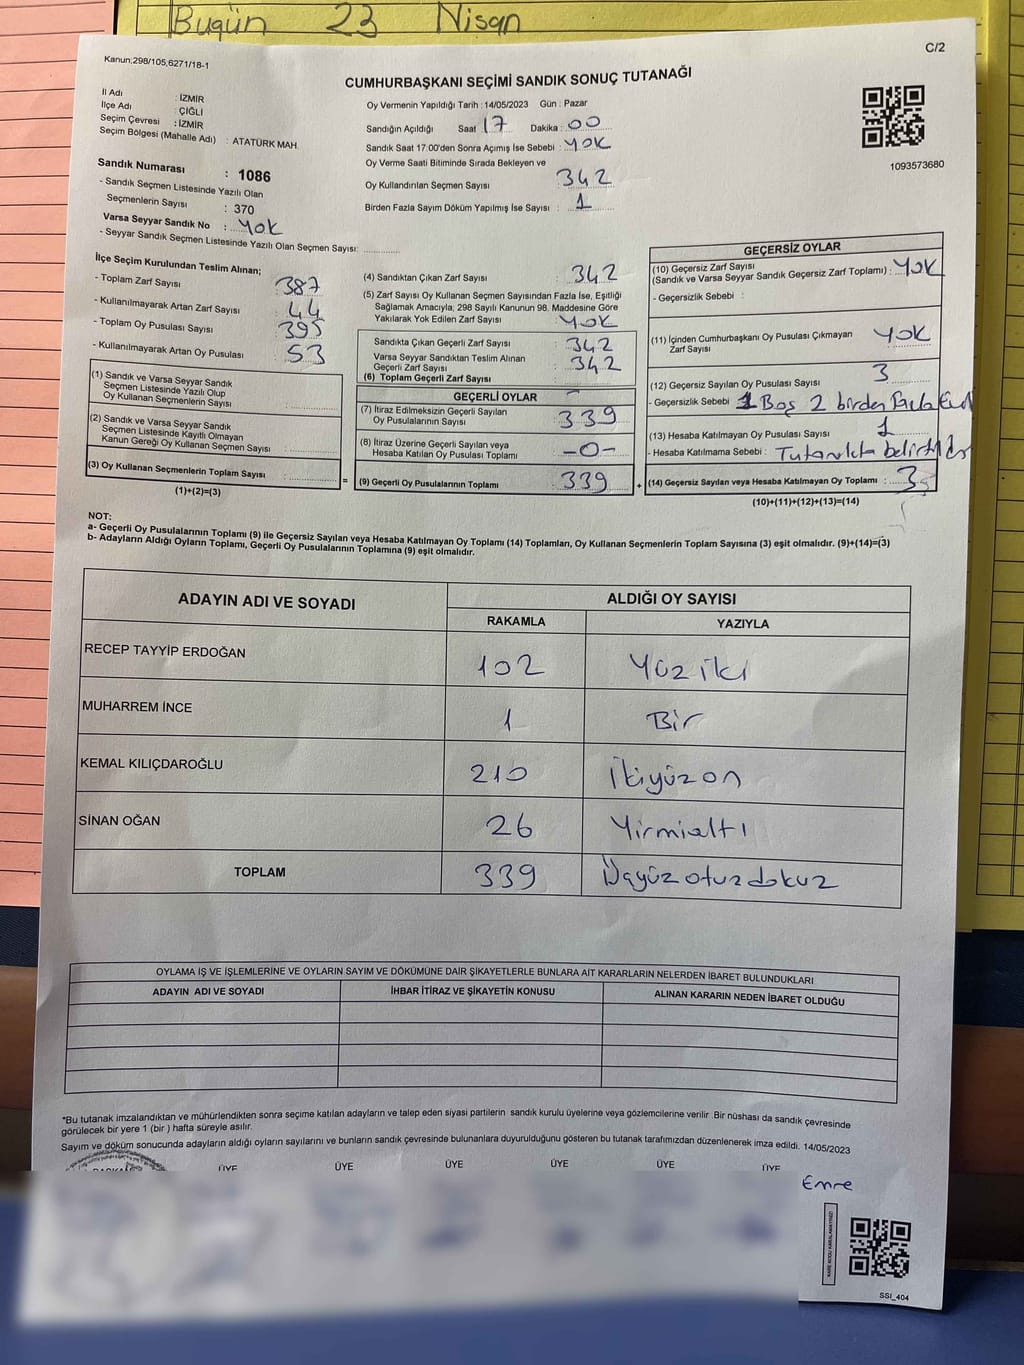 Bugün 23 Nisan
Kanun;298/105,6271/18-1
C/2
CUMHURBAŞKANI SEÇİMİ SANDIK SONUÇ TUTANAĞI
İl Adı : İZMİR
İlçe Adı : ÇİĞLİ
Seçim Çevresi : İZMİR
Seçim Bölgesi (Mahalle Adı) : ATATÜRK MAH.
Sandık Numarası : 1086
- Sandık Seçmen Listesinde Yazılı Olan
Seçmenlerin Sayısı : 370
Varsa Seyyar Sandık No : YOK
- Seyyar Sandık Seçmen Listesinde Yazılı Olan Seçmen Sayısı:
Oy Vermenin Yapıldığı Tarih :14/05/2023 Gün : Pazar
Sandığın Açıldığı Saat 17 Dakika : 00
Sandık Saat 17:00'den Sonra Açımış İse Sebebi : YOK
Oy Verme Saati Bitiminde Sırada Bekleyen ve
Oy Kullandırılan Seçmen Sayısı 342
Birden Fazla Sayım Döküm Yapılmış İse Sayısı : 1
1093573680
İlçe Seçim Kurulundan Teslim Alınan;
- Toplam Zarf Sayısı 387
- Kullanılmayarak Artan Zarf Sayısı 44
- Toplam Oy Pusulası Sayısı 395
- Kullanılmayarak Artan Oy Pusulası 53
(1) Sandık ve Varsa Seyyar Sandık
Seçmen Listesinde Yazılı Olup
Oy Kullanan Seçmenlerin Sayısı :
(2) Sandık ve Varsa Seyyar Sandık
Seçmen Listesinde Kayıtlı Olmayan
Kanun Gereği Oy Kullanan Seçmen Sayısı :
(3) Oy Kullanan Seçmenlerin Toplam Sayısı :
(1)+(2)=(3)
=
(4) Sandıktan Çıkan Zarf Sayısı 342
(5) Zarf Sayısı Oy Kullanan Seçmen Sayısından Fazla İse, Eşitliği
Sağlamak Amacıyla, 298 Sayılı Kanunun 98. Maddesine Göre
Yakılarak Yok Edilen Zarf Sayısı YOK
Sandıkta Çıkan Geçerli Zarf Sayısı : 342
Varsa Seyyar Sandıktan Teslim Alınan
Geçerli Zarf Sayısı : 342
(6) Toplam Geçerli Zarf Sayısı :
GEÇERLİ OYLAR
(7) İtiraz Edilmeksizin Geçerli Sayılan
Oy Pusulalarının Sayısı : 339
(8) İtiraz Üzerine Geçerli Sayılan veya
Hesaba Katılan Oy Pusulası Toplamı : -0-
(9) Geçerli Oy Pusulalarının Toplamı : 339
+
GEÇERSİZ OYLAR
(10) Geçersiz Zarf Sayısı
(Sandık ve Varsa Seyyar Sandık Geçersiz Zarf Toplamı) : YOK
- Geçersizlik Sebebi :
(11) İçinden Cumhurbaşkanı Oy Pusulası Çıkmayan
Zarf Sayısı YOK
(12) Geçersiz Sayılan Oy Pusulası Sayısı 3
- Geçersizlik Sebebi 1 Boş 2 birden fazla
(13) Hesaba Katılmayan Oy Pusulası Sayısı 1
- Hesaba Katılmama Sebebi : Tutanakta
(14) Geçersiz Sayılan veya Hesaba Katılmayan Oy Toplamı : 3
(10)+(11)+(12)+(13)=(14)
NOT:
a- Geçerli Oy Pusulalarının Toplamı (9) ile Geçersiz Sayılan veya Hesaba Katılmayan Oy Toplamı (14) Toplamları, Oy Kullanan Seçmenlerin Toplam Sayısına (3) eşit olmalıdır. (9)+(14)=(3)
b- Adayların Aldığı Oyların Toplamı, Geçerli Oy Pusulalarının Toplamına (9) eşit olmalıdır.
ADAYIN ADI VE SOYADI ALDIĞI OY SAYISI
RAKAMLA YAZIYLA
RECEP TAYYİP ERDOĞAN 102 Yüz iki
MUHARREM İNCE 1 Bir
KEMAL KILIÇDAROĞLU 210 İkiyüzon
SİNAN OĞAN 26 Yirmialtı
TOPLAM 339 Üçyüz otuz dokuz
OYLAMA İŞ VE İŞLEMLERİNE VE OYLARIN SAYIM VE DÖKÜMÜNE DAİR ŞİKAYETLERLE BUNLARA AİT KARARLARIN NELERDEN İBARET BULUNDUKLARI
ADAYIN ADI VE SOYADI İHBAR İTİRAZ VE ŞİKAYETİN KONUSU ALINAN KARARIN NEDEN İBARET OLDUĞU
*Bu tutanak imzalandıktan ve mühürlendikten sonra seçime katılan adayların ve talep eden siyasi partilerin sandık kurulu üyelerine veya gözlemcilerine verilir .Bir nüshası da sandık çevresinde
görülecek bir yere 1 (bir ) hafta süreyle asılır.
Sayım ve döküm sonucunda adayların aldığı oyların sayılarını ve bunların sandık çevresinde bulunanlara duyurulduğunu gösteren bu tutanak tarafımızdan düzenlenerek imza edildi. 14/05/2023
ÜYE ÜYE ÜYE ÜYE ÜYE ÜYE
Emre
SSI_404